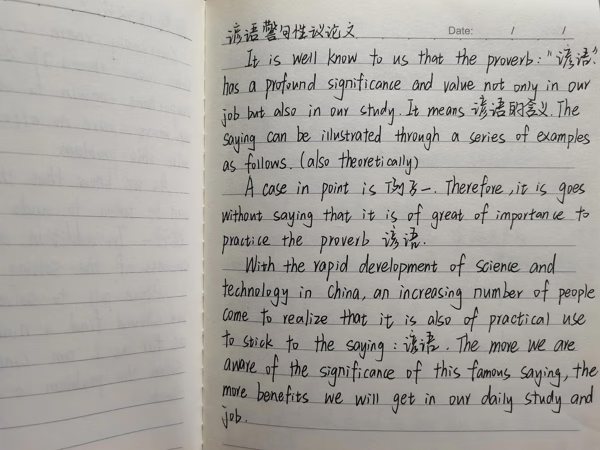 谚语警句性议论文
Date: / /
It is well know to us that the proverb: "谚语"
has a profound significance and value not only in our
job but also in our study. It means 谚语的含义. The
saying can be illustrated through a series of examples
as follows. (also theoretically)
A case in point is 例子一. Therefore, it is goes
without saying that it is of great of importance to
practice the proverb 谚语.
With the rapid development of science and
technology in China, an increasing number of people
come to realize that it is also of practical use
to stick to the saying: 谚语. The more we are
aware of the significance of this famous saying, the
more benefits we will get in our daily study and
job.